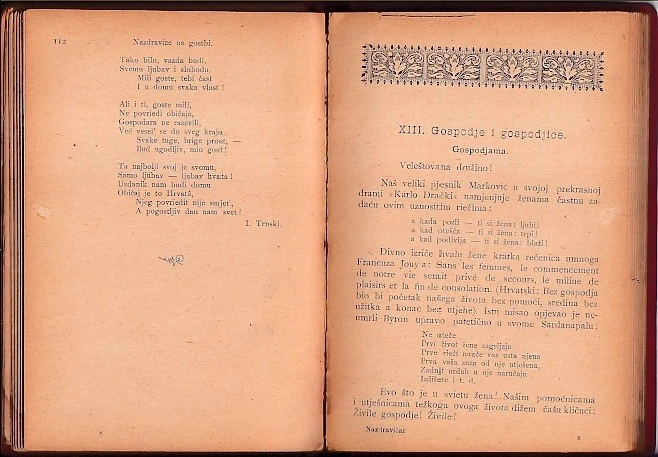 112
Nazdravice na gostbi.
Tako bilo, vazda budi,
Svemu ljubav i slobodu,
Mili goste, tebi čast
I u domu svaka vlast!
Ali i ti, goste mili,
Ne povriedi običaja,
Gospodara ne razcvili,
Već vesel' se do sveg kraja.
Svake tuge, brige prost, —
Bud ugodljiv, mio gost!
Ta najbolji svoj je svomu,
Samo ljubav — ljubav hvata!
Uzdanik nam budi domu
Običaj je to Hrvatâ,
Njeg povriedit nije smjet',
A pogostljiv dan nam svet!
I. Trnski.
XIII. Gospodje i gospodjice.
Gospodjama.
Veleštovana družino!
Naš veliki pjesnik Marković u svojoj prekrasnoj
drami »Karlo Drački« namjenjuje ženama častnu za-
daću ovim uznositim riečima:
a kada pozli — ti si žena: ljubi!
a kad otešća — ti si žena: trpi!
a kad podivlja — ti si žena: blaži!
Divno izriče hvalu žene kratka rečenica umnoga
Francuza Jouy'a: Sans les femmes, le commencement
de notre vie serait privé de secours, le miliue de
plaisirs et la fin de consolation. (Hrvatski: Bez gospodja
bio bi početak našega života bez pomoći, sredina bez
užitka a konac bez utjehe). Istu misao opjevao je ne-
umrli Byron upravo patetično u svome Sardanapalu:
Ne uteče
Prvi život žene zagrljaju
Prve rieči nauče vas usta njena
Prva vaša suza od nje utješena,
Zadnji uzdah u nje naručaju
Izdišete i t. d.
Evo što je u svietu žena! Našim pomoćnicama
i utješnicama težkoga ovoga života dižem čašu kličući:
Živile gospodje! Živile!
Nazdravičar
8